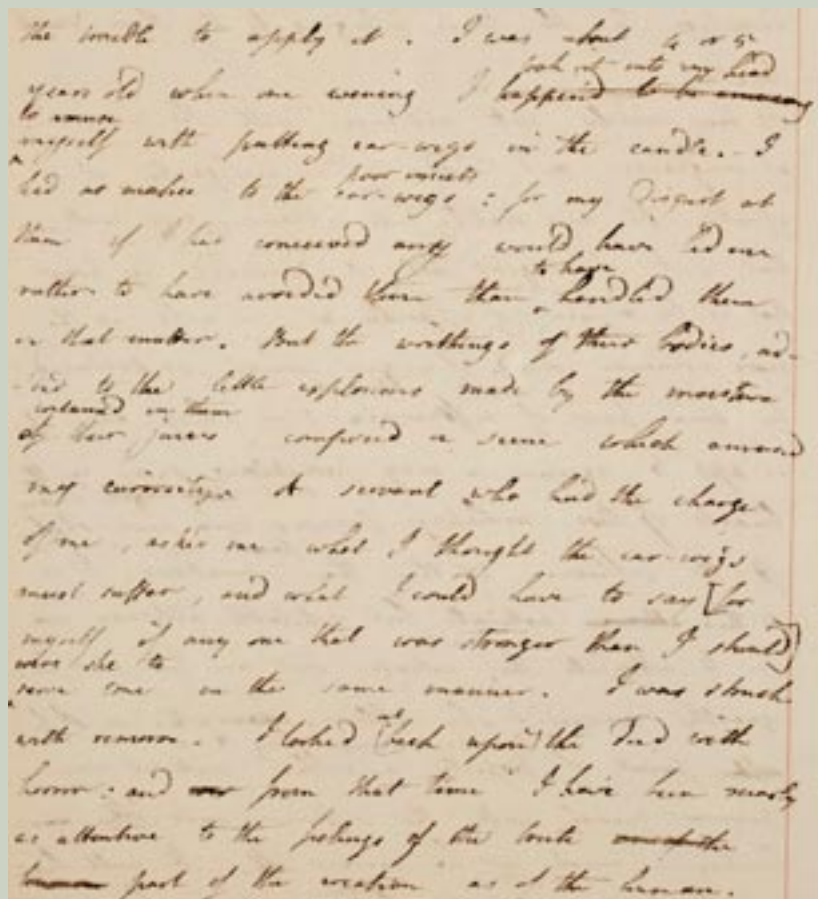 the trouble to apply it. I was about 4 or 5
took it into my head
years old when one evening I happen'd to be amusing
to amuse
myself with putting ear-wigs in the candle. I
poor insects
had no malice to the ear-wigs: for my disgust at
them if I had conceived any would have led me
to have
rather to have avoided them than handled them
in that matter. But the writhings of their bodies, ad-
-ded to the little explosions made by the moisture
contained in them
of their juices composed a scene which amused
my curiosity. A servant who had the charge
of me, asked me what I thought the ear-wigs
must suffer, and what I could have to say [for
myself if any one that was stronger than I should]
were she to
serve me in the same manner. I was struck
with remorse. I looked back upon the deed with
at
horror: and from that time I have been nearly
as attentive to the feelings of the brute
part of the creation as of the human.